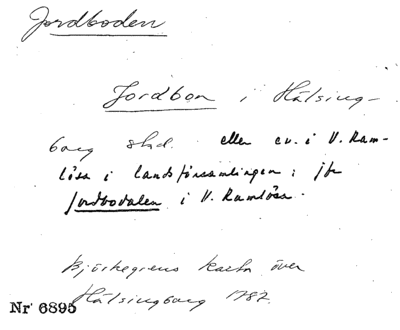 Jordboden
Jordbon i Hälsing-
borg stad. eller ev. i V. Ram-
lösa i landsförsamlingen; jfr
Jordbodalen i V. Ramlösa.
Björkegrens karta över
Hälsingborg 1787.
Nr 6895